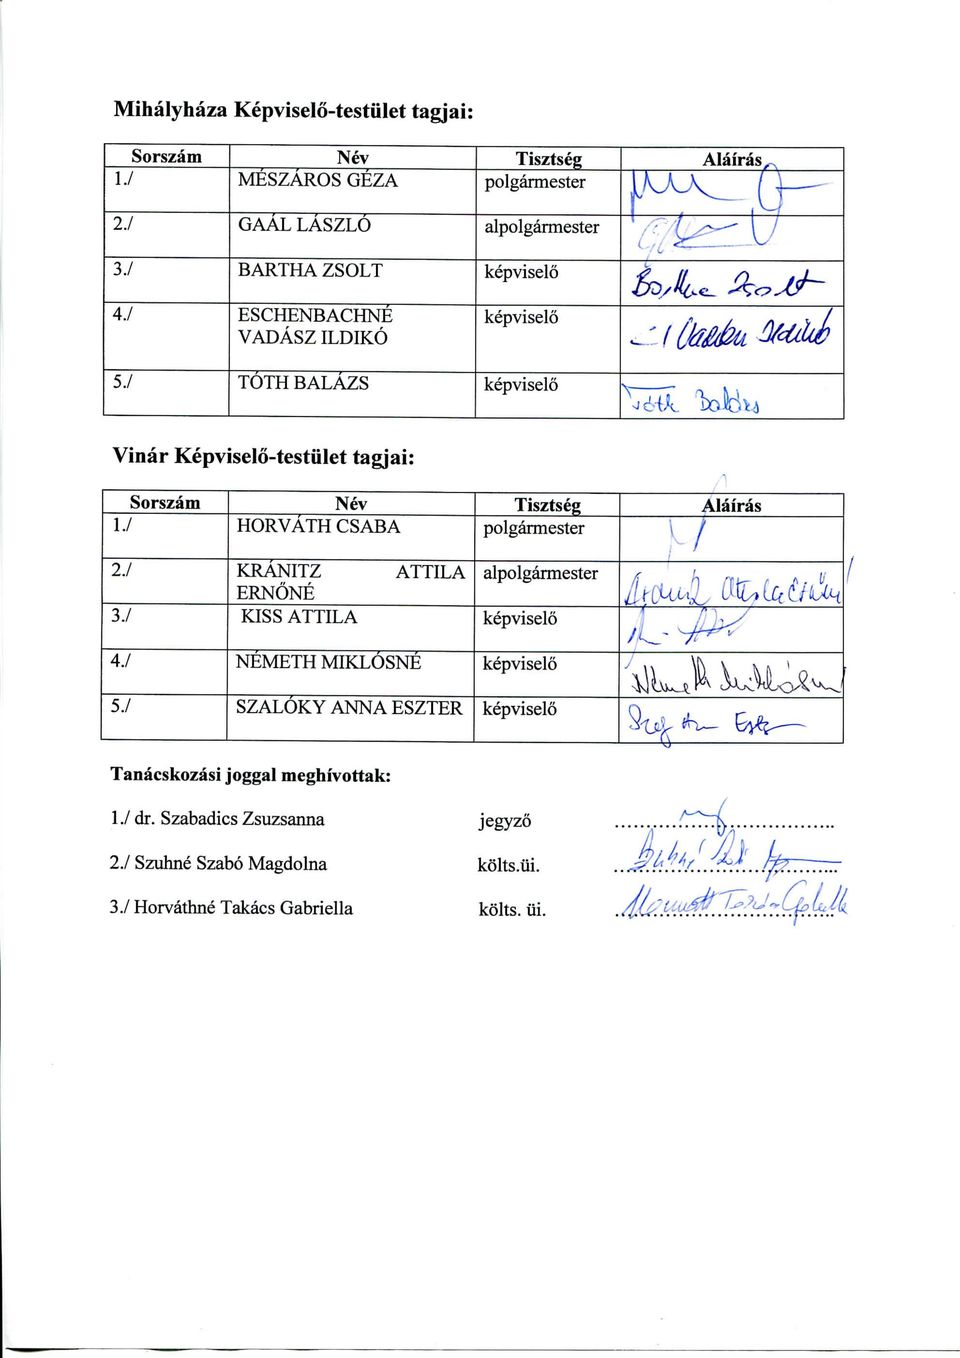 Mihályháza Képviselő-testület tagjai:
Sorszám Név Tisztség Aláírás
1./ MÉSZÁROS GÉZA polgármester
2./ GAÁL LÁSZLÓ alpolgármester
3./ BARTHA ZSOLT képviselő Bartha Zsolt
4./ ESCHENBACHNÉ képviselő
VADÁSZ ILDIKÓ Ildikó
5./ TÓTH BALÁZS képviselő Tóth Balázs
Vinár Képviselő-testület tagjai:
Sorszám Név Tisztség Aláírás
1./ HORVÁTH CSABA polgármester
2./ KRÁNITZ ATTILA alpolgármester
ERNŐNÉ
3./ KISS ATTILA képviselő
4./ NÉMETH MIKLÓSNÉ képviselő Németh Miklósné
5./ SZALÓKY ANNA ESZTER képviselő
Tanácskozási joggal meghívottak:
1./ dr. Szabadics Zsuzsanna jegyző
2./ Szuhné Szabó Magdolna költs.üi.
3./ Horváthné Takács Gabriella költs. üi.